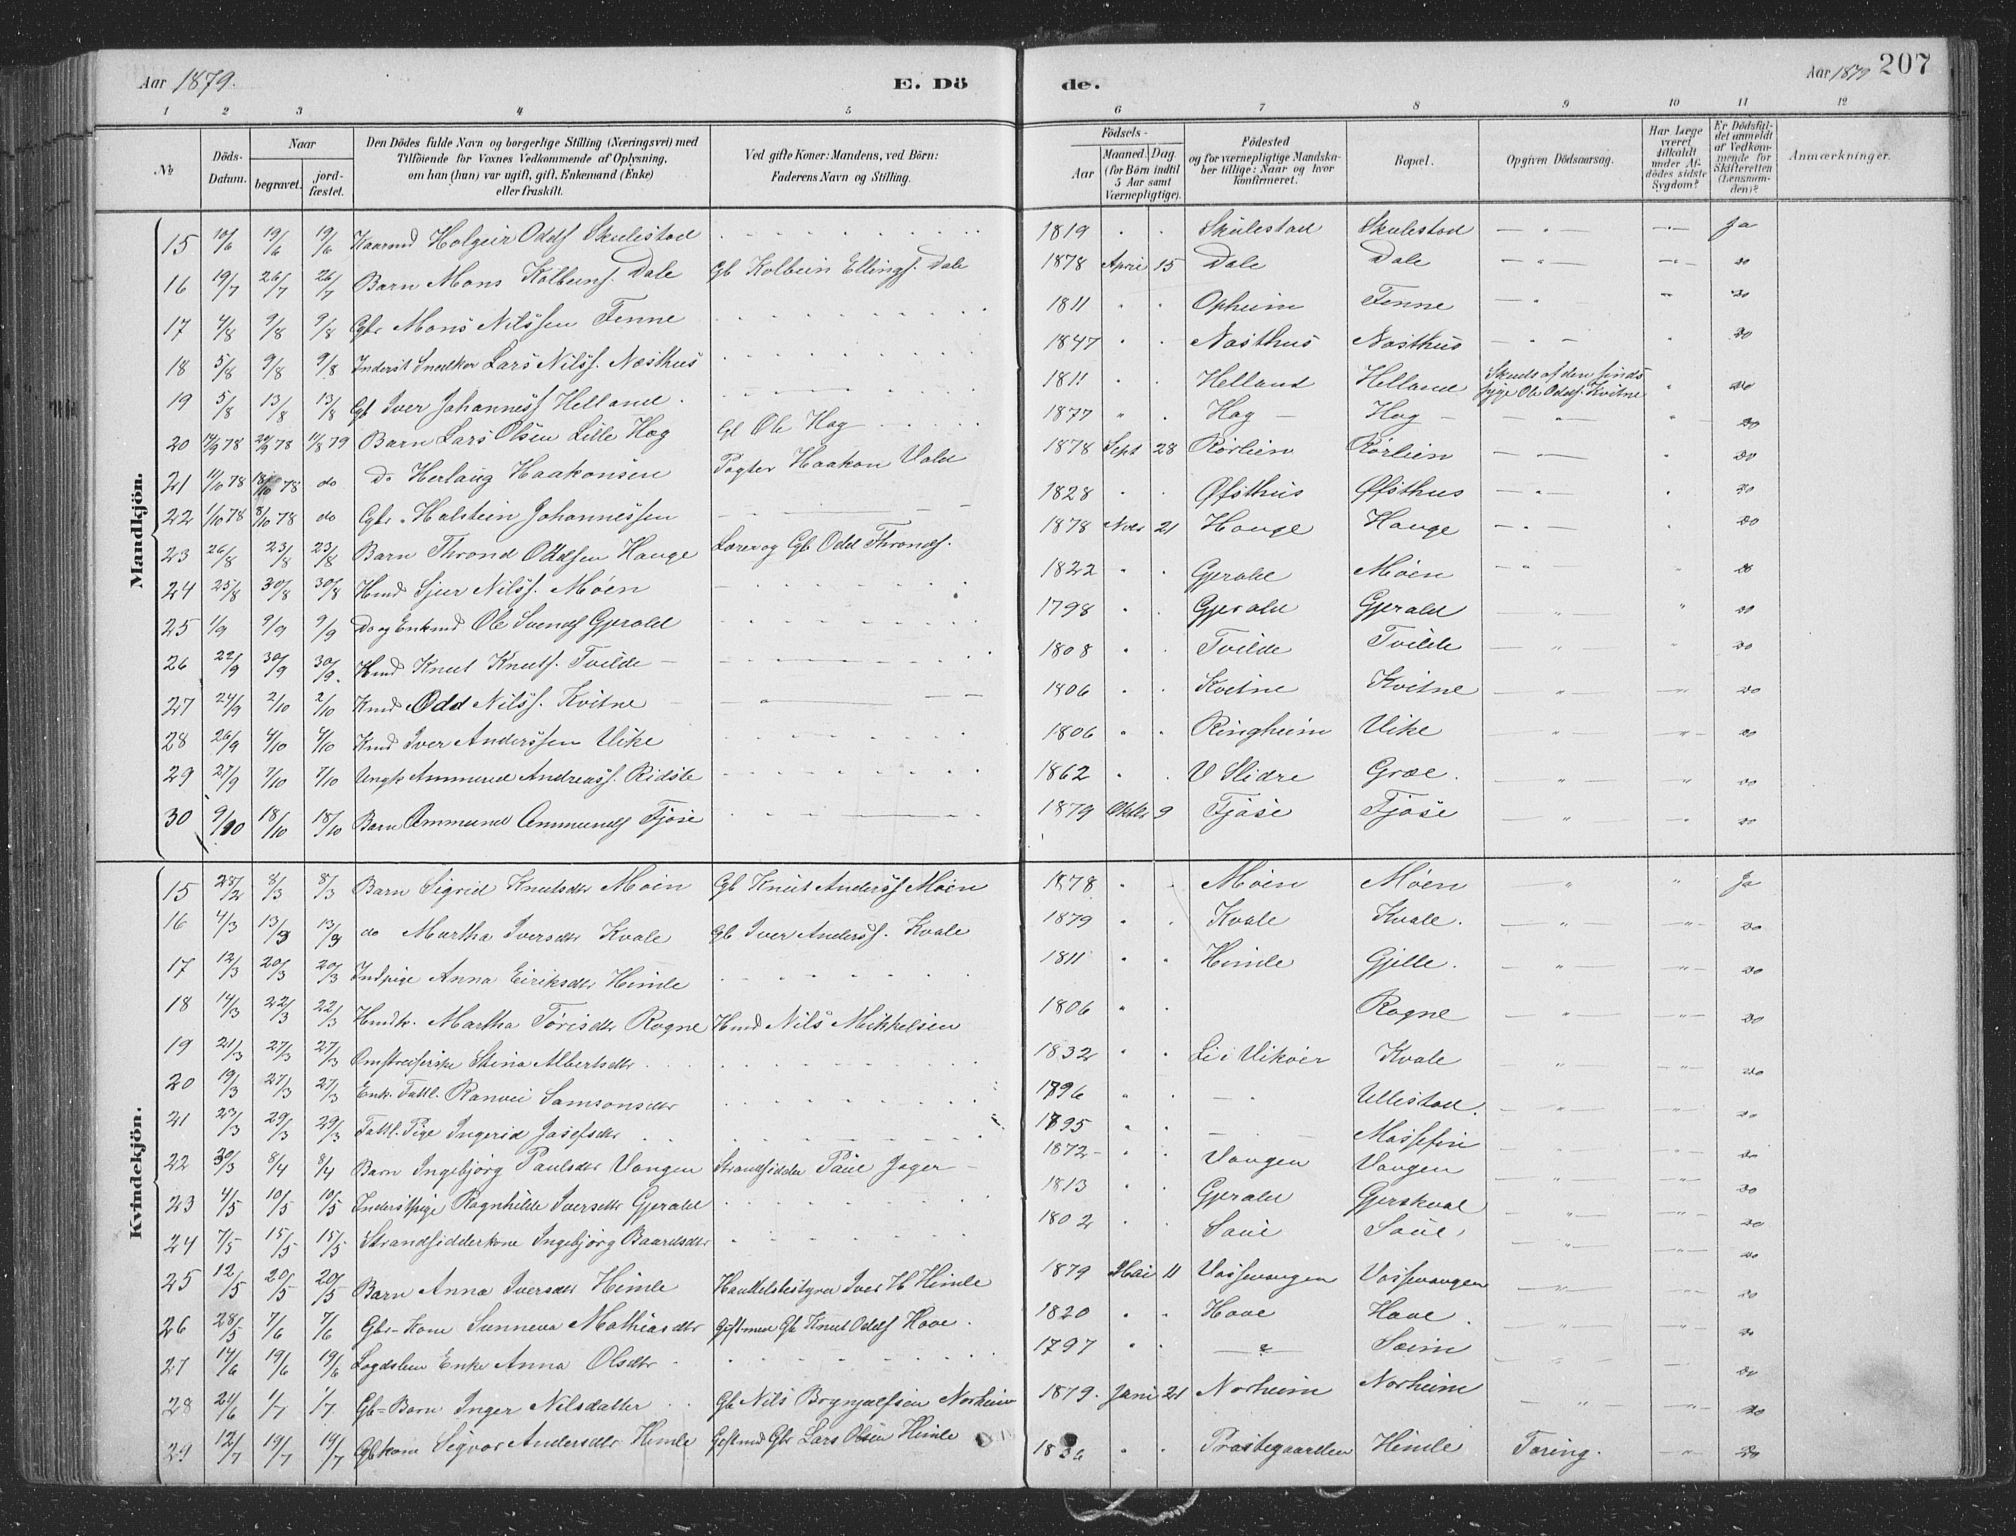 Aar 1879. E. Dö de. Aar 1879 207
1 2 3 4 5 6 7 8 9 10 11 12
No
Döds-Datum.
Naar
begravet.
jord-fæstet.
Den Dödes fulde Navn og borgerlige Stilling (Næringsvei) med
Tilföiende for Voxnes Vedkommende af Oplysning,
om han (hun) var ugift, gift, Enkemand (Enke)
eller fraskilt.
Ved gifte Koner: Mandens, ved Börn:
Faderens Navn og Stilling.
Födsels-
Aar
Maaned. Dag
(for Børn indtil
5 Aar samt
Værnepligtige).
Födested
og for værnepligtige Mandska-
ber tillige: Naar og hvor
konfirmeret.
Bopæl.
Opgiven Dödsaarsag.
Har Læge
været
tilkaldt
under Af-
dödes sidste
Sygdom?
Er Dödsfal-
det anmeldt
af Vedkom-
mende for
Skifteretten
(Lensman-
den)?
Anmærkninger.
Mandkjön.
15 10/6 19/6 19/6 Kaarmd Holgeir Odds Skulestad 1819 Skulestad Skulestad Ja
16 19/7 26/7 26/7 Barn Mons Kolbeins. Dale Gb Kolbein Ellings. Dale 1878 April 15 Dale Dale do
17 4/8 9/8 9/8 Gbr Mons Nilssen Fenne 1811 Opheim Fenne do
18 5/8 9/8 9/8 Inderst Snedker Lars Nilss. Næsthus 1847 Næsthus Næsthus do
19 5/8 13/8 13/8 Gb Iver Johanness Helland 1811 Helland Helland Skudt af den sinds
syge Ole Odds. Kvitne do
20 78 78 11/8 79 Barn Lars Olsen Lille Hæg Gb Ole Hæg 1877 Hæg Hæg do
21 11/10 78 18/10 78 do Do Herlaug Haakonsen Pagter Haakon Vold 1878 Sept 28 Rørlien Rørlien do
22 1/10 78 8/10 78 do Gbr. Holstein Johannessen 1828 Øfsthus Øfsthus do
23 26/8 23/8 23/8 Barn Thrond Oddsen Hauge Lærer og Gb Odd Thronds. 1878 Nov 21 Hauge Hauge do
24 25/8 30/8 30/8 Hmd Sjur Nilss. Möen 1822 Gjerald Möen do
25 1/9 9/9 9/9 Do og Enkmd Ole Svends Gjerald 1798 Gjerald Gjerald do
26 22/9 30/9 30/9 Hmd Knut Knuts. Tvilde 1808 Tvilde Tvilde do
27 24/9 2/10 2/10 Kmd Odd Nilss. Kvitne 1806 Kvitne Kvitne do
28 26/9 4/10 4/10 Kmd Iver Anderssen Vike 1806 Ringheim Vike do
29 27/9 7/10 7/10 Ungk Ammund Andreass. Ridste 1862 V Slidre Græe. do
30 9/10 18/10 18/10 Barn Ammund Ammunds Fjøse 1879 Oktbr 9 Fjøse Fjøse do
Kvindekjön.
15 8/3 8/3 Barn Sigrid Knutsdtr Möen Gb Knut Anderss Möen 1878 Möen Möen Ja
16 4/3 13/3 13/3 do Martha Iversdtr Kvale Gb Iver Anderss. Kvale 1879 Kvale Kvale. do
17 12/3 20/3 20/3 Indpige Anna Eiriksdtr Himle 1811 Himle Gjelle. do
18 14/3 22/3 22/3 Hmdk. Martha Törisdtr Rogne Hmd Nils Mikkelsen 1806 Rogne do
19 21/3 27/3 27/3 Omstreiferske Stina Albertsdtr 1832 Li i Vikøer Kvale do
20 19/3 27/3 27/3 Enk. Fattl. Ranvei Samsonsdtr 1796 Ullestad. do
21 23/3 29/3 29/3 Fattl. Pige Ingerid Josefsdtr 1795 do
22 30/3 8/4 8/4 Barn Ingebjörg Paulsdtr Vangen Strandsidder Paul Jæger 1872 Vangen Vangen do
23 4/5 10/5 10/5 Inderstpige Ragnhilde Iversdtr Gjerald 1813 Gjerald Gjerskval do
24 7/5 15/5 15/5 Strandsidderkone Ingebjörg Baardsdtr 1802 Saue Saue do
25 12/5 20/5 20/5 Barn Anna Iversdtr Himle Handelsbestyrer Iver H Himle 1879 Mai 11 Vossevangen Vossevangen do
26 28/5 7/6 7/6 Gbr-kone Sunneva Mathiasdtr Gift med Gb Knut Odds Hove. 1820 Hove Hove. do
27 14/6 19/6 19/6 Lægdslem Enke Anna Olsdtr 1797 Sæim do
28 24/6 1/7 1/7 Gb-Barn Inger Nilsdatter Gb Nils Brynjulfsen Norheim 1879. Juni 21 Norheim Norheim do
29 12/7 19/7 19/7 Gbkone Sigvor Andersdtr Himle Gift med Gbr Lars Olsen Himle Præstegaarden Himle Tæring. do